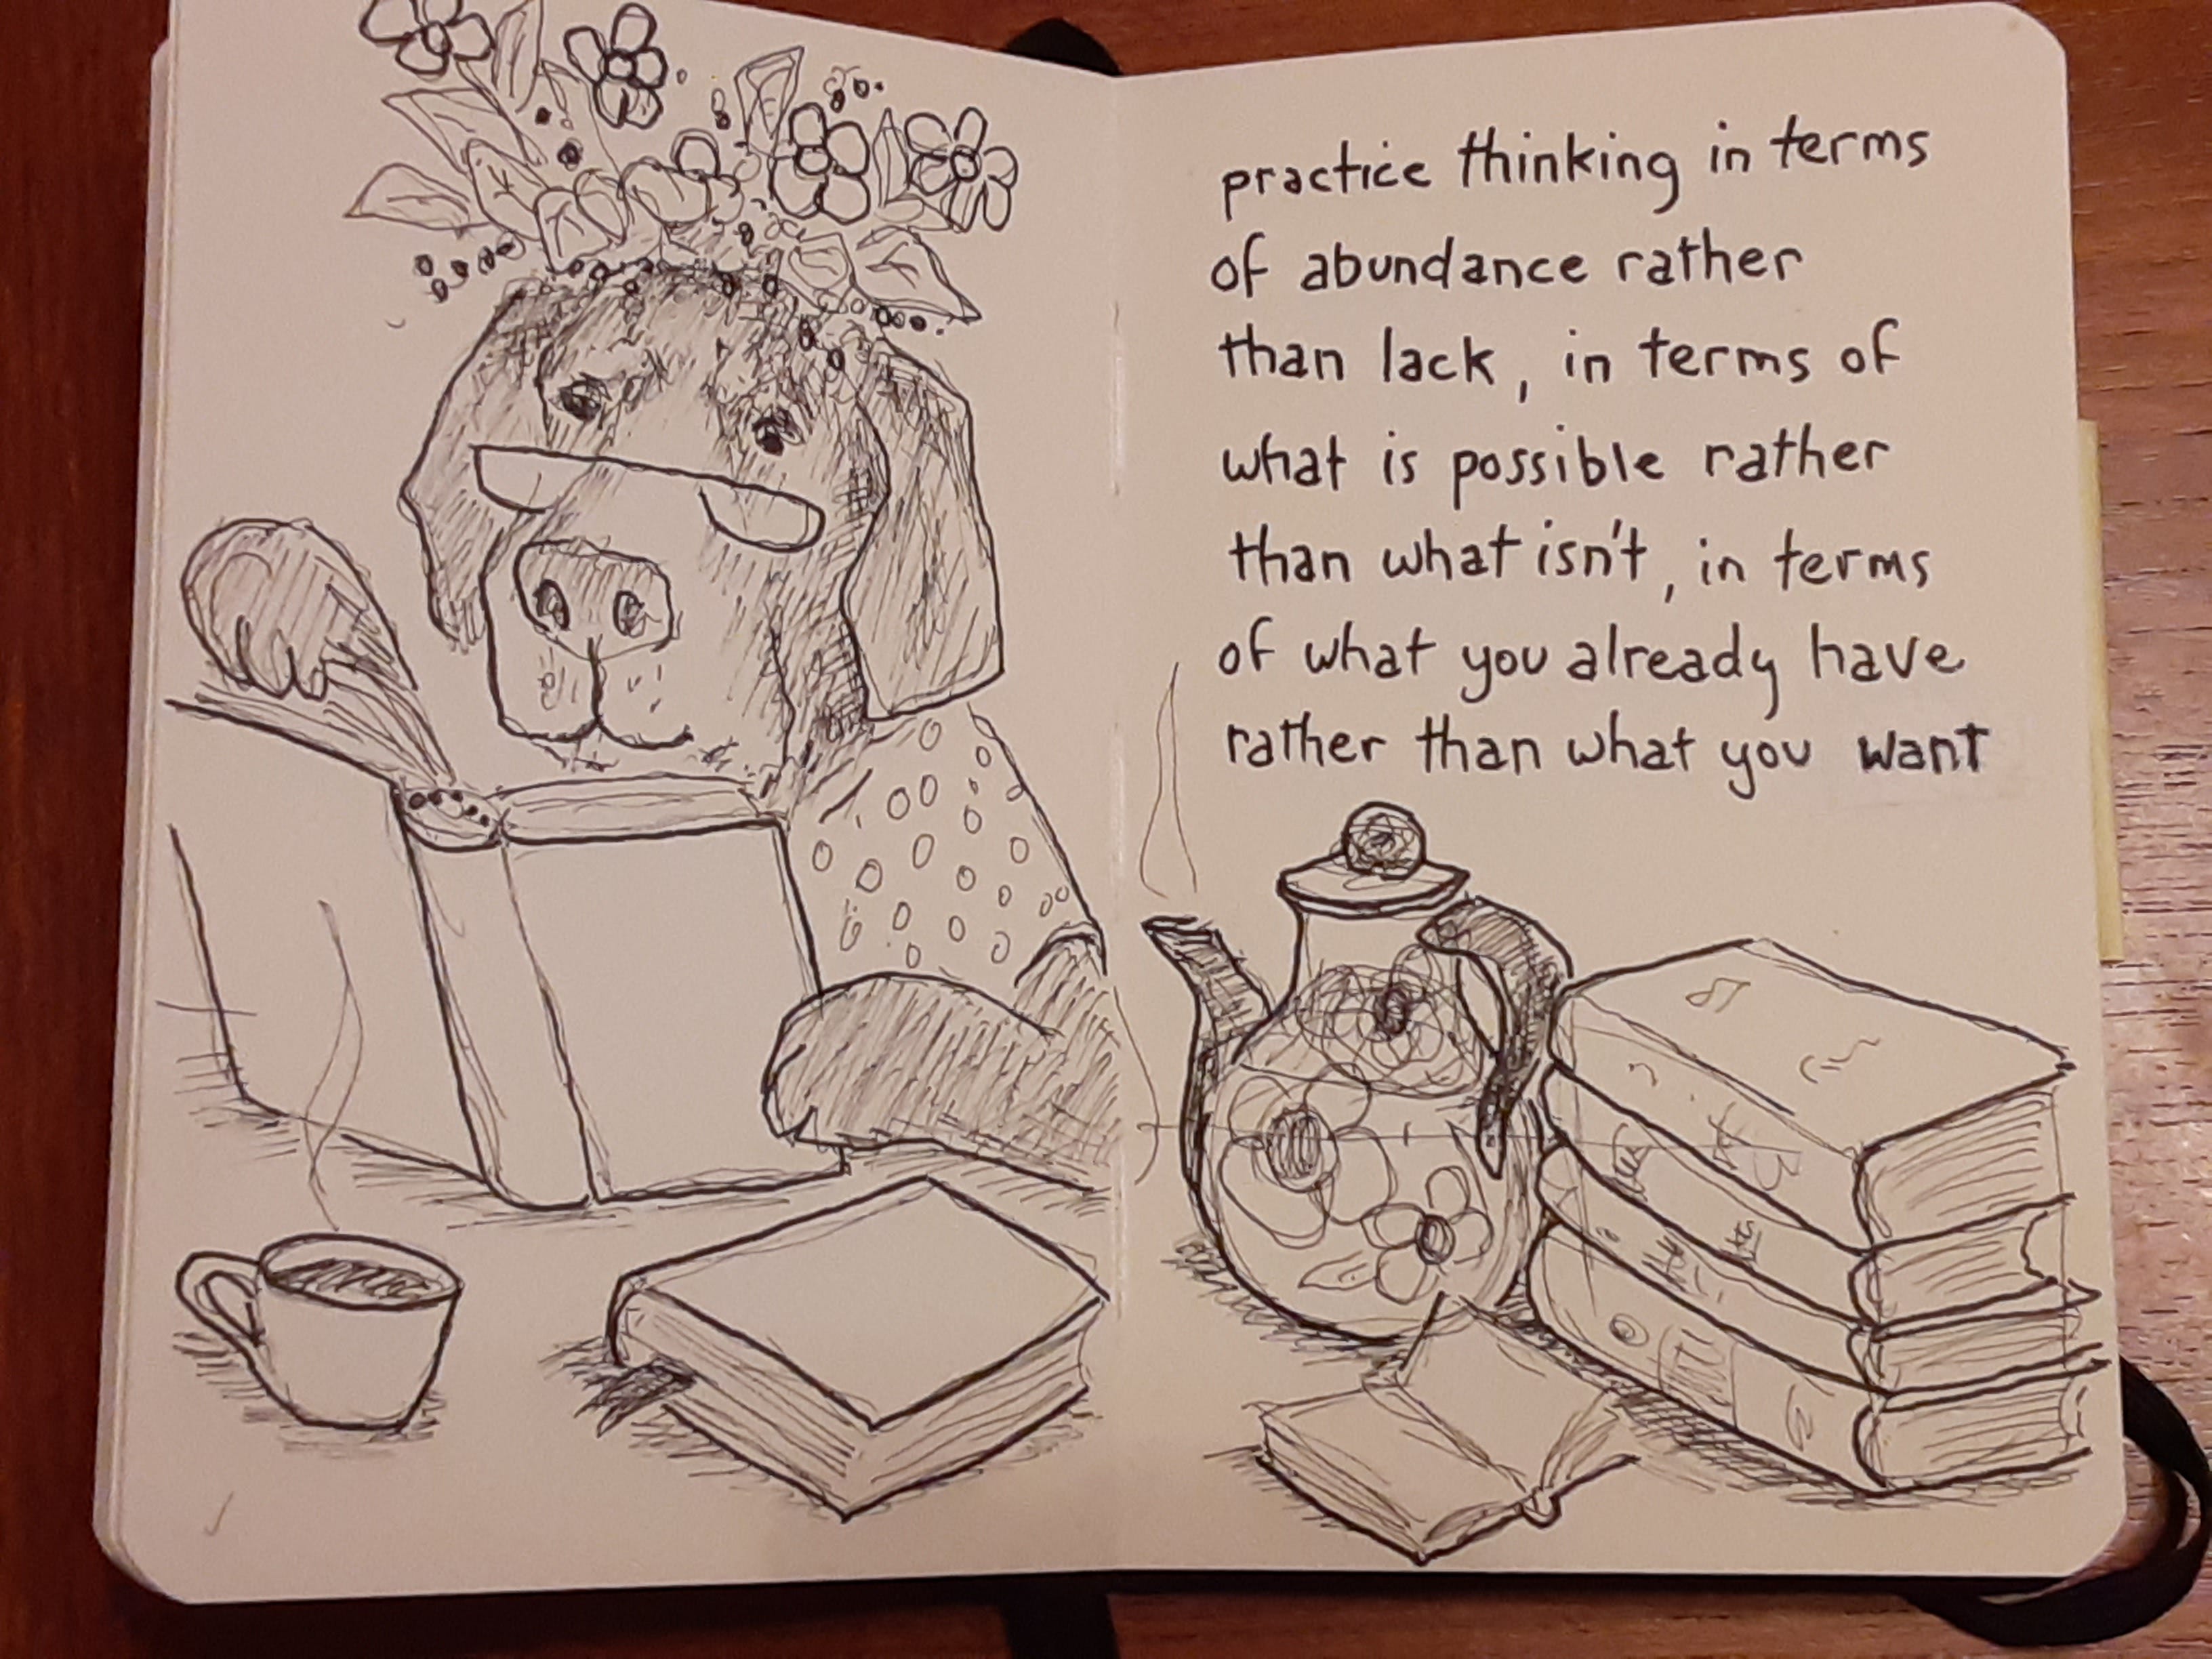 practice thinking in terms
of abundance rather
than lack, in terms of
what is possible rather
than what isn't, in terms
of what you already have
rather than what you want